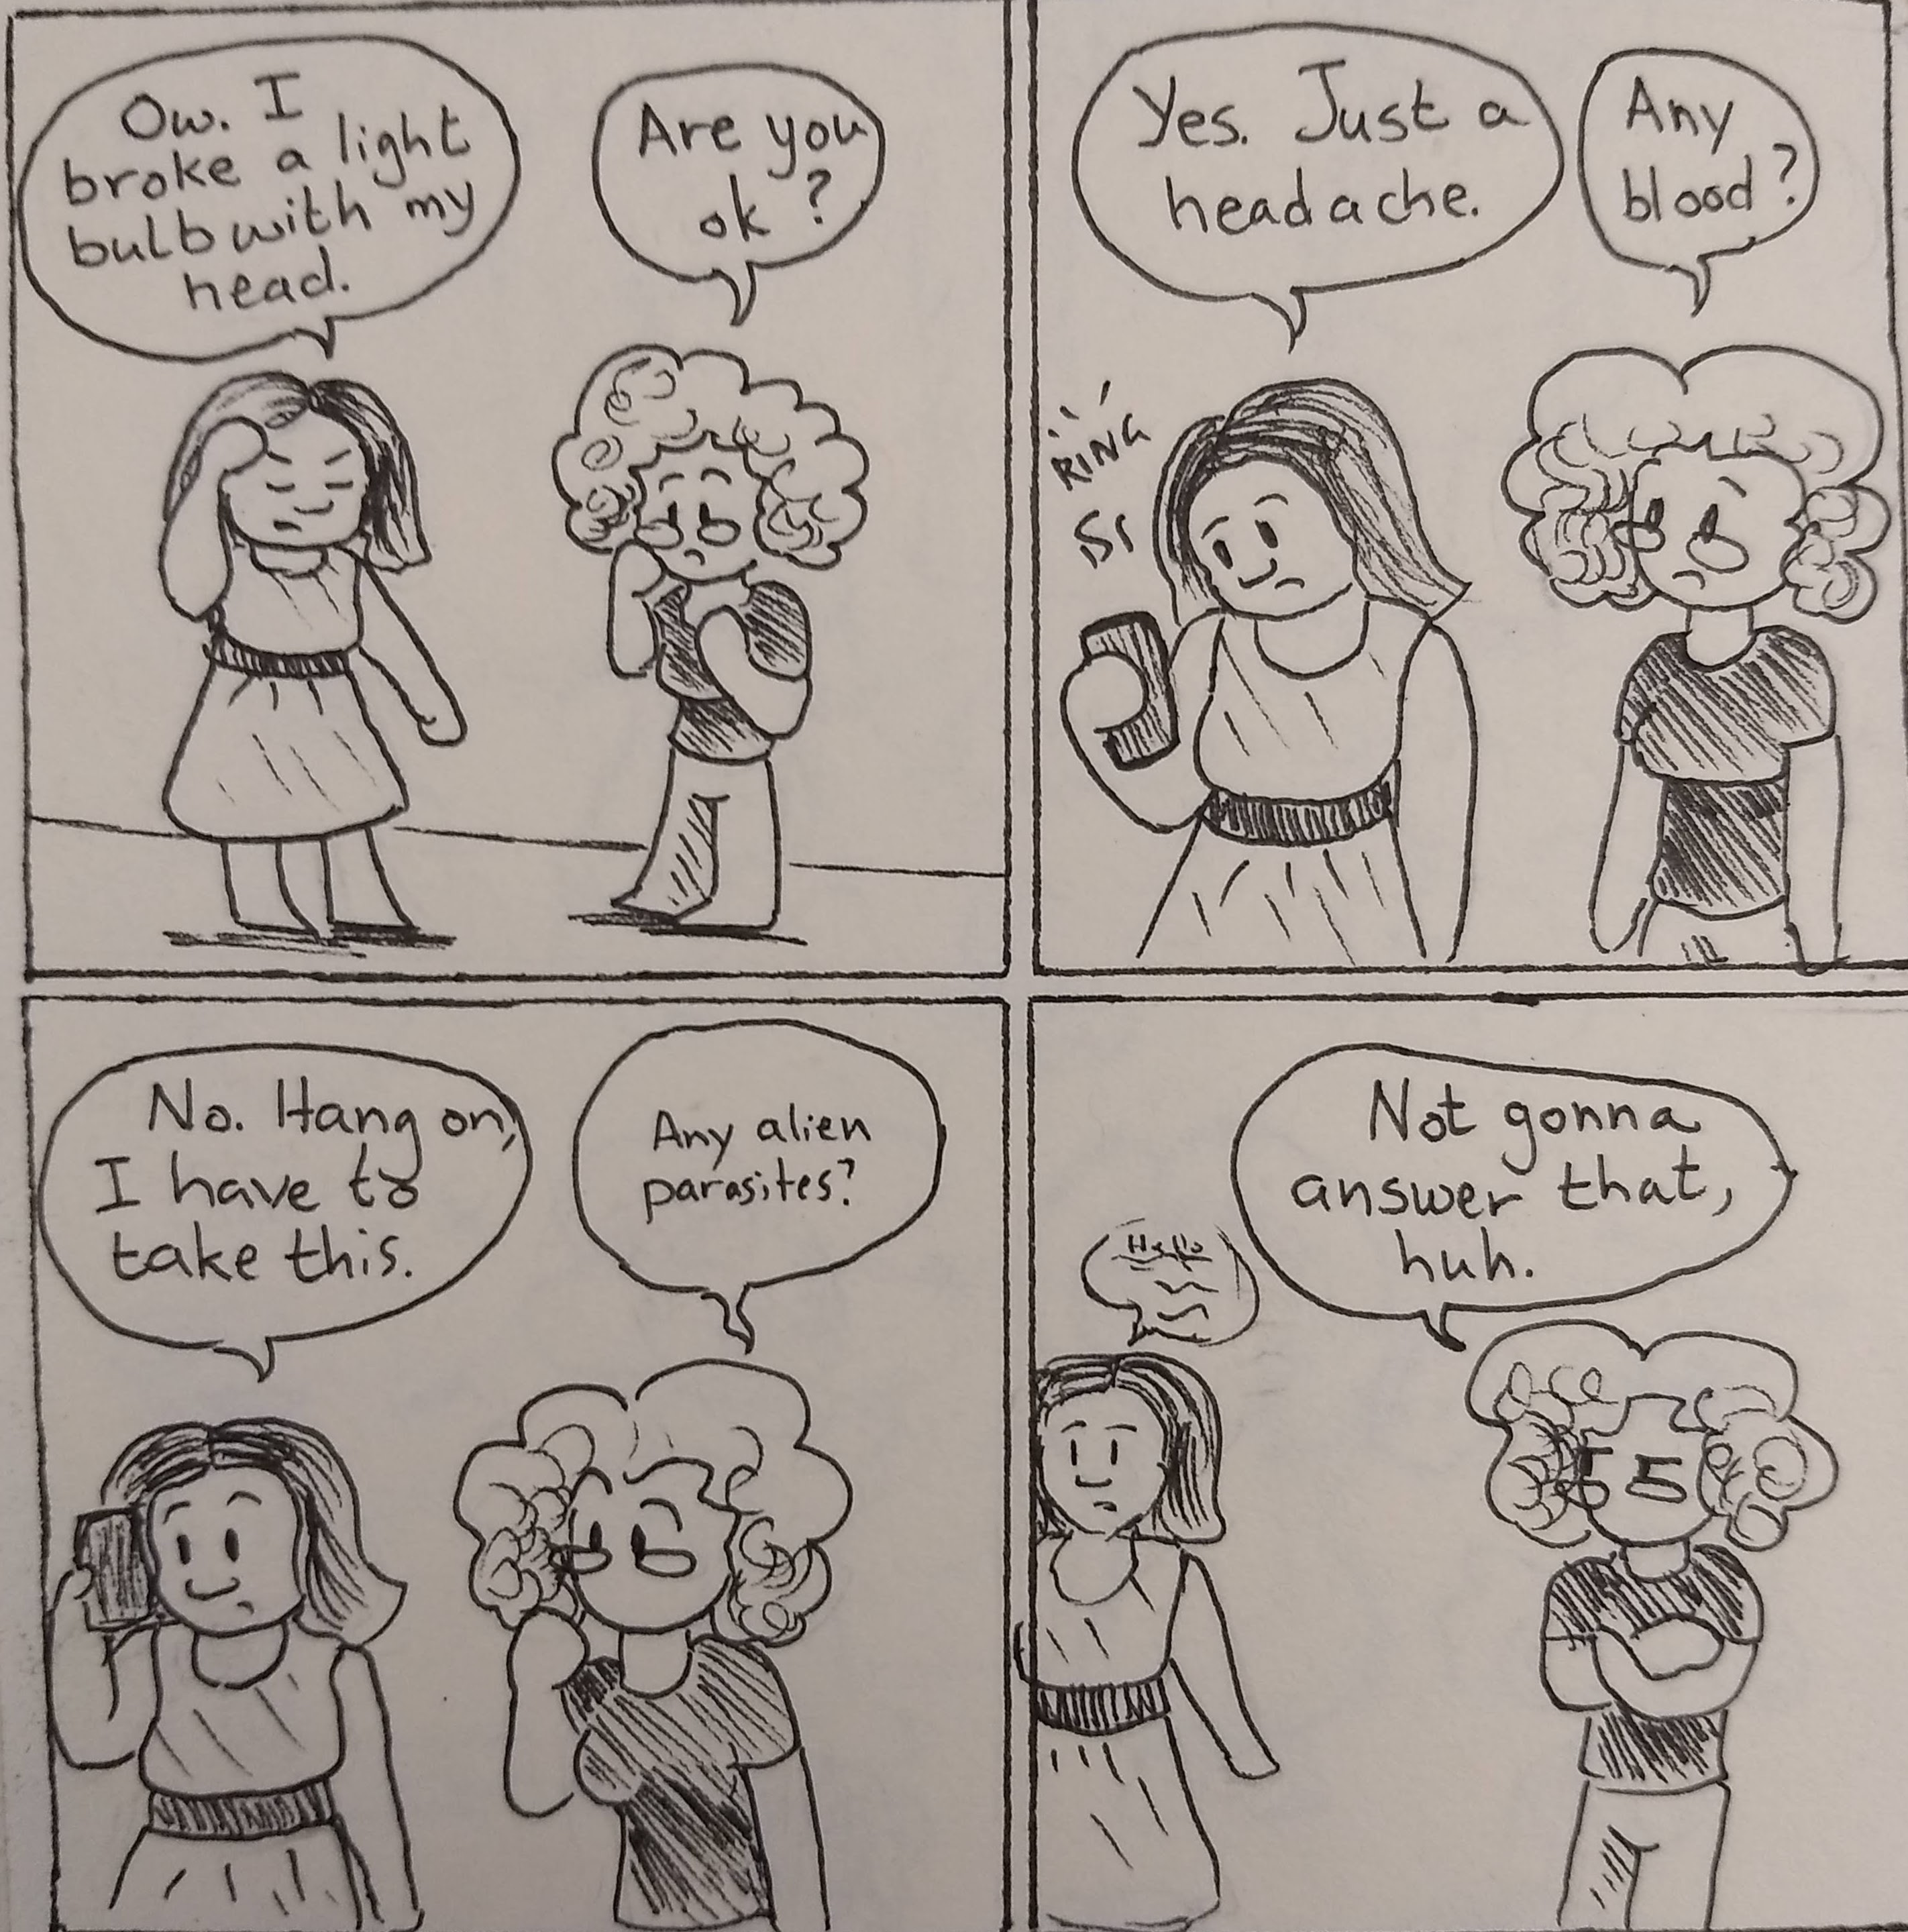 Ow. I
broke a light
bulb with my
head.
Are you
ok?
Yes. Just a
headache.
Any
blood?
RING
No. Hang on,
I have to
take this.
Any alien
parasites?
Not gonna
answer that,
huh.
Hello